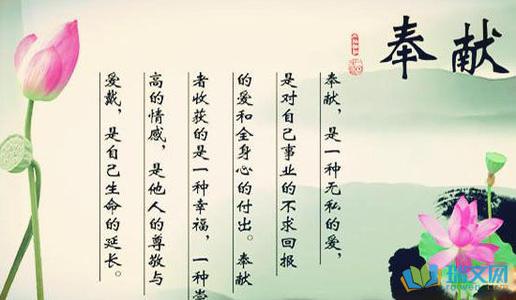 奉献
奉献，是一种无私的爱，
是对自己事业的不求回报
的爱和全身心的付出。奉献
者收获的是一种幸福，一种崇
高的情感，是他人的尊敬与
爱戴，是自己生命的延长。
瑞文网